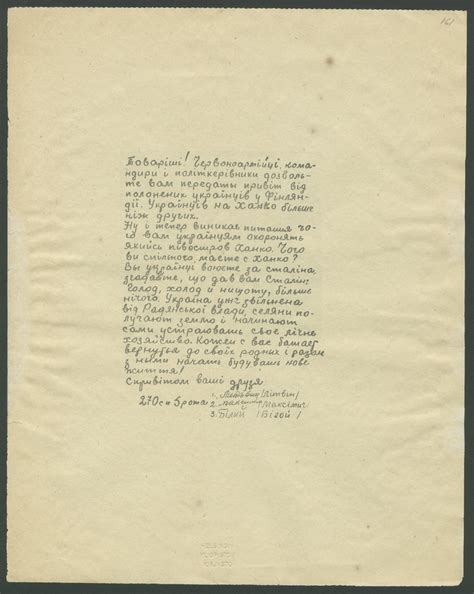 161
Товаріші! Червоноармійці, кома-
ндири і політкерівники дозволь-
те вам передаты привіт від
полонених українців у Фінлян-
дії. Українців на Ханко більше
ніж других.
Ну і тепер виникає питання чо-
го вам українцям охоронять
якийсь півостров Ханко. Чого
ви спільного маєте с Ханко?
Вы українці воюєте за сталіна,
згадайте, що дав вам Сталін:
Голод, холод и нищоту, більше
нічого. Україна уже звільнена
від Радянської влади, селяни по-
лучают землю і начинают
сами устраювать своє лічне
хозяйство. Кожен с вас бажает
вернутья до своїх родных і разом
з ними начать будувать нове
життя!
Спривітом ваші друзя
270 сп 5 рота 1. /Літвін/
2. Максімів/
3. Білий /Білой/